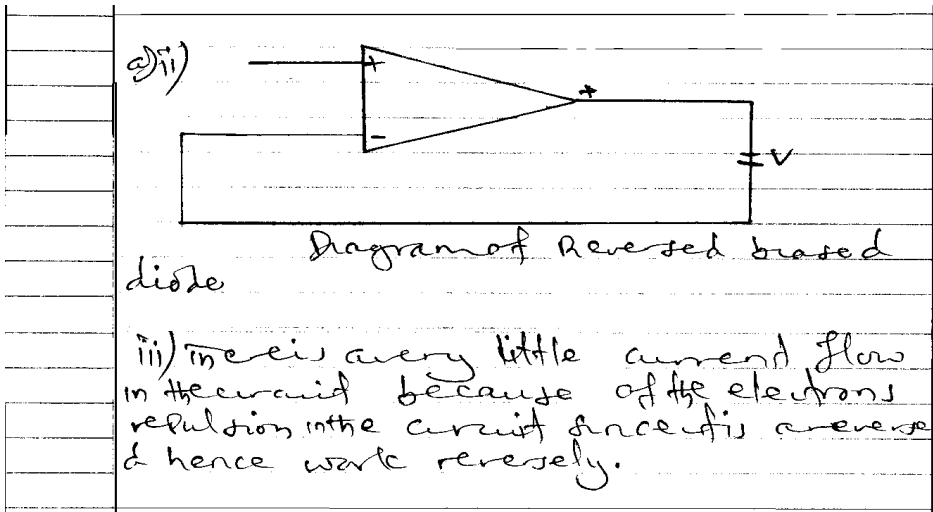 a)ii)
+
+
-
V
Diagram of Reversed biased
diode
iii) There is a very little currend flow
in the circuit because of the electrons
repulsion in the circuit since it is a reverse
& hence work reversely.